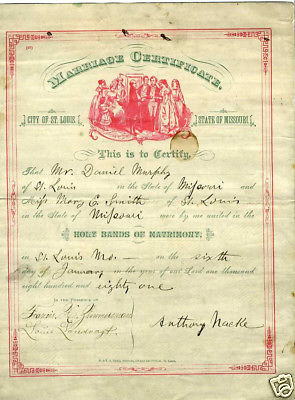 MARRIAGE CERTIFICATE.
CITY OF ST. LOUIS. STATE OF MISSOURI.
This is to Certify,
That Mr. Daniel Murphy
of St. Louis in the State of Missouri and
Miss Mary E. Smith of St. Louis
in the State of Missouri were by me united in the
HOLY BANDS OF MATRIMONY,
in St. Louis Mo. on the sixth
day of January in the year of our Lord one thousand
eight hundred and eighty one
In the Presence of
Francis C. Zimmerman
Anthony Nacke
ebay